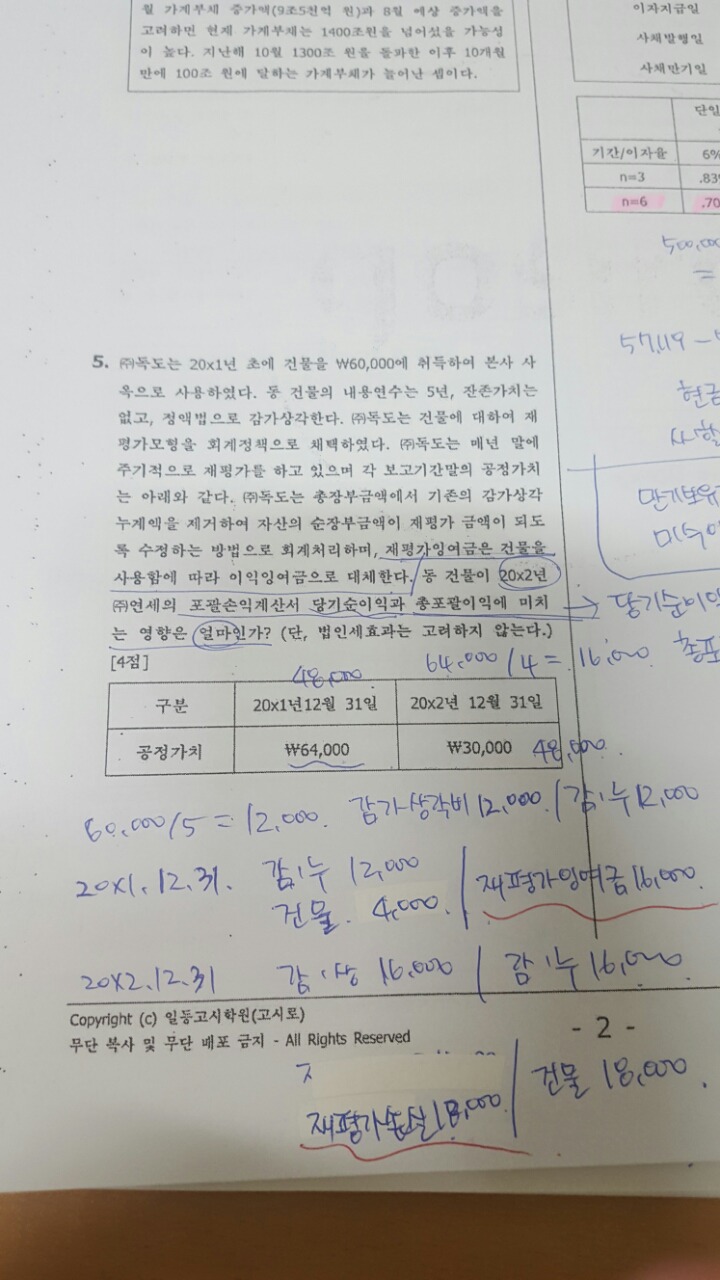 월 가계부채 증가액(9조5천억 원)과 8월 예상 증가액을
고려하면 현재 가계부채는 1400조원을 넘어섰을 가능성
이 높다. 지난해 10월 1300조 원을 돌파한 이후 10개월
만에 100조 원에 달하는 가계부채가 늘어난 셈이다.
이자지급일
사채발행일
사채만기일
단일
기간/이자율 6%
n=3 .83
n=6 .70
500,000
=
57,119 -
현금
사할
만기보유
미수이
5. ㈜독도는 20x1년 초에 건물을 ₩60,000에 취득하여 본사 사
옥으로 사용하였다. 동 건물의 내용연수는 5년, 잔존가치는
없고, 정액법으로 감가상각한다. ㈜독도는 건물에 대하여 재
평가모형을 회계정책으로 채택하였다. ㈜독도는 매년 말에
주기적으로 재평가를 하고 있으며 각 보고기간말의 공정가치
는 아래와 같다. ㈜독도는 총장부금액에서 기존의 감가상각
누계액을 제거하여 자산의 순장부금액이 재평가 금액이 되도
록 수정하는 방법으로 회계처리하며, 재평가잉여금은 건물을
사용함에 따라 이익잉여금으로 대체한다. 동 건물이 20x2년
㈜연세의 포괄손익계산서 당기순이익과 총포괄이익에 미치
는 영향은 얼마인가? (단, 법인세효과는 고려하지 않는다.)
[4점]
→ 당기순이익
총포
48,000
64,000/4 = 16,000
구분 20x1년12월 31일 20x2년 12월 31일
공정가치 ₩64,000 ₩30,000
48,000
60,000/5 = 12,000. 감가상각비 12,000 / 감·누 12,000
20X1. 12. 31. 감·누 12,000 / 재평가잉여금 16,000.
건물. 4,000.
20X2. 12. 31 감·상 16,000 / 감·누 16,000
Copyright (c) 일등고시학원(고시로)
무단 복사 및 무단 배포 금지 - All Rights Reserved
- 2 -
재평가손실 18,000 / 건물 18,000.